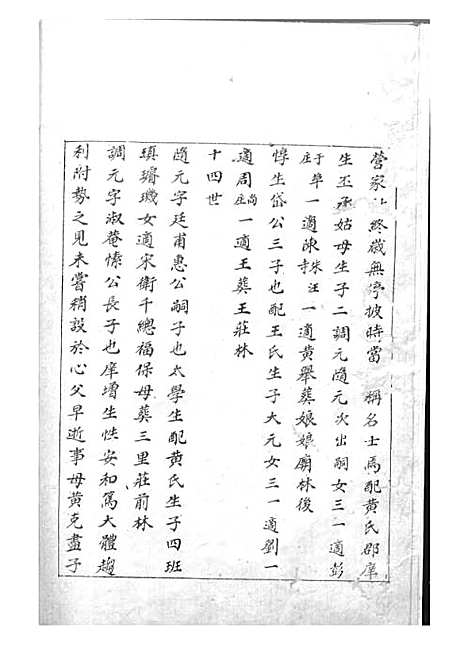 營家計終歲無停披時當 稱名士焉配黄氏郡庠
生丕承姑母生子二調元隨元次出嗣女三一適彭
于莊埠一適陳朱寺汪一適黄舉葬娘娘廟林後
惇生岱公三子也配王氏生子大元女三一適劉一
適周尚莊一適王葬王莊林
十四世
隨元字廷甫惠公嗣子也太學生配黄氏生子四班
瑱璿璣女適宋衛千總福保母葬三里莊前林
調元字淑菴愫公長子也庠增生性安和篤大體趨
利附勢之見未嘗稍設於心父早逝事母黄克盡子